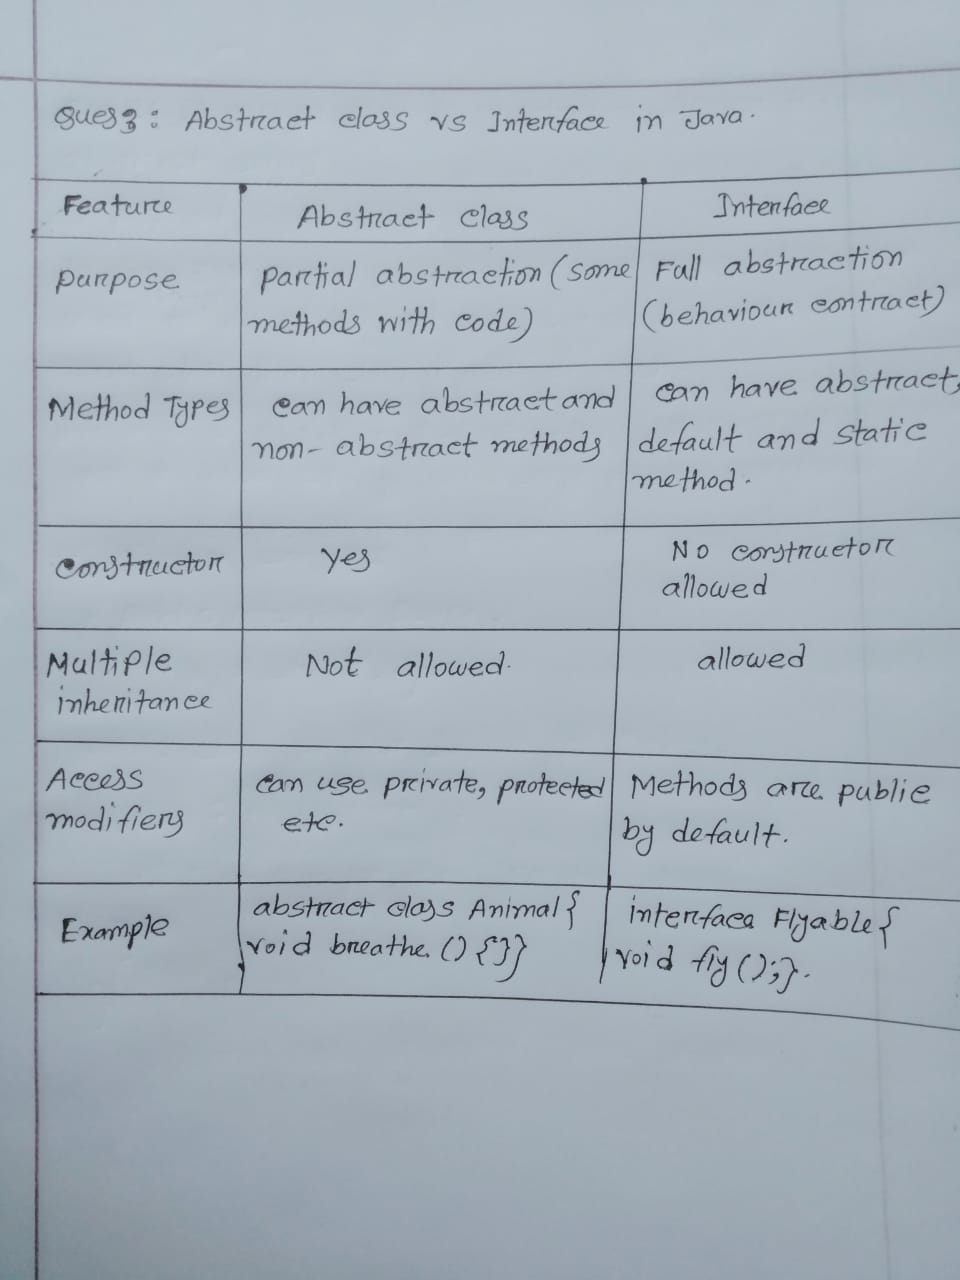 Ques 3: Abstract class vs Interface in Java.
Feature
Abstract class
Interface
purpose
partial abstraction (some
methods with code)
Full abstraction
(behaviour contract)
Method Types
can have abstract and
non-abstract methods
can have abstract,
default and static
method.
constructor
Yes
No constructor
allowed
Multiple
inheritance
Not allowed.
allowed
Access
modifiers
can use private, protected
etc.
Methods are public
by default.
Example
abstract class Animal{
void breathe () {}}
interface Flyable{
void fly ();}.